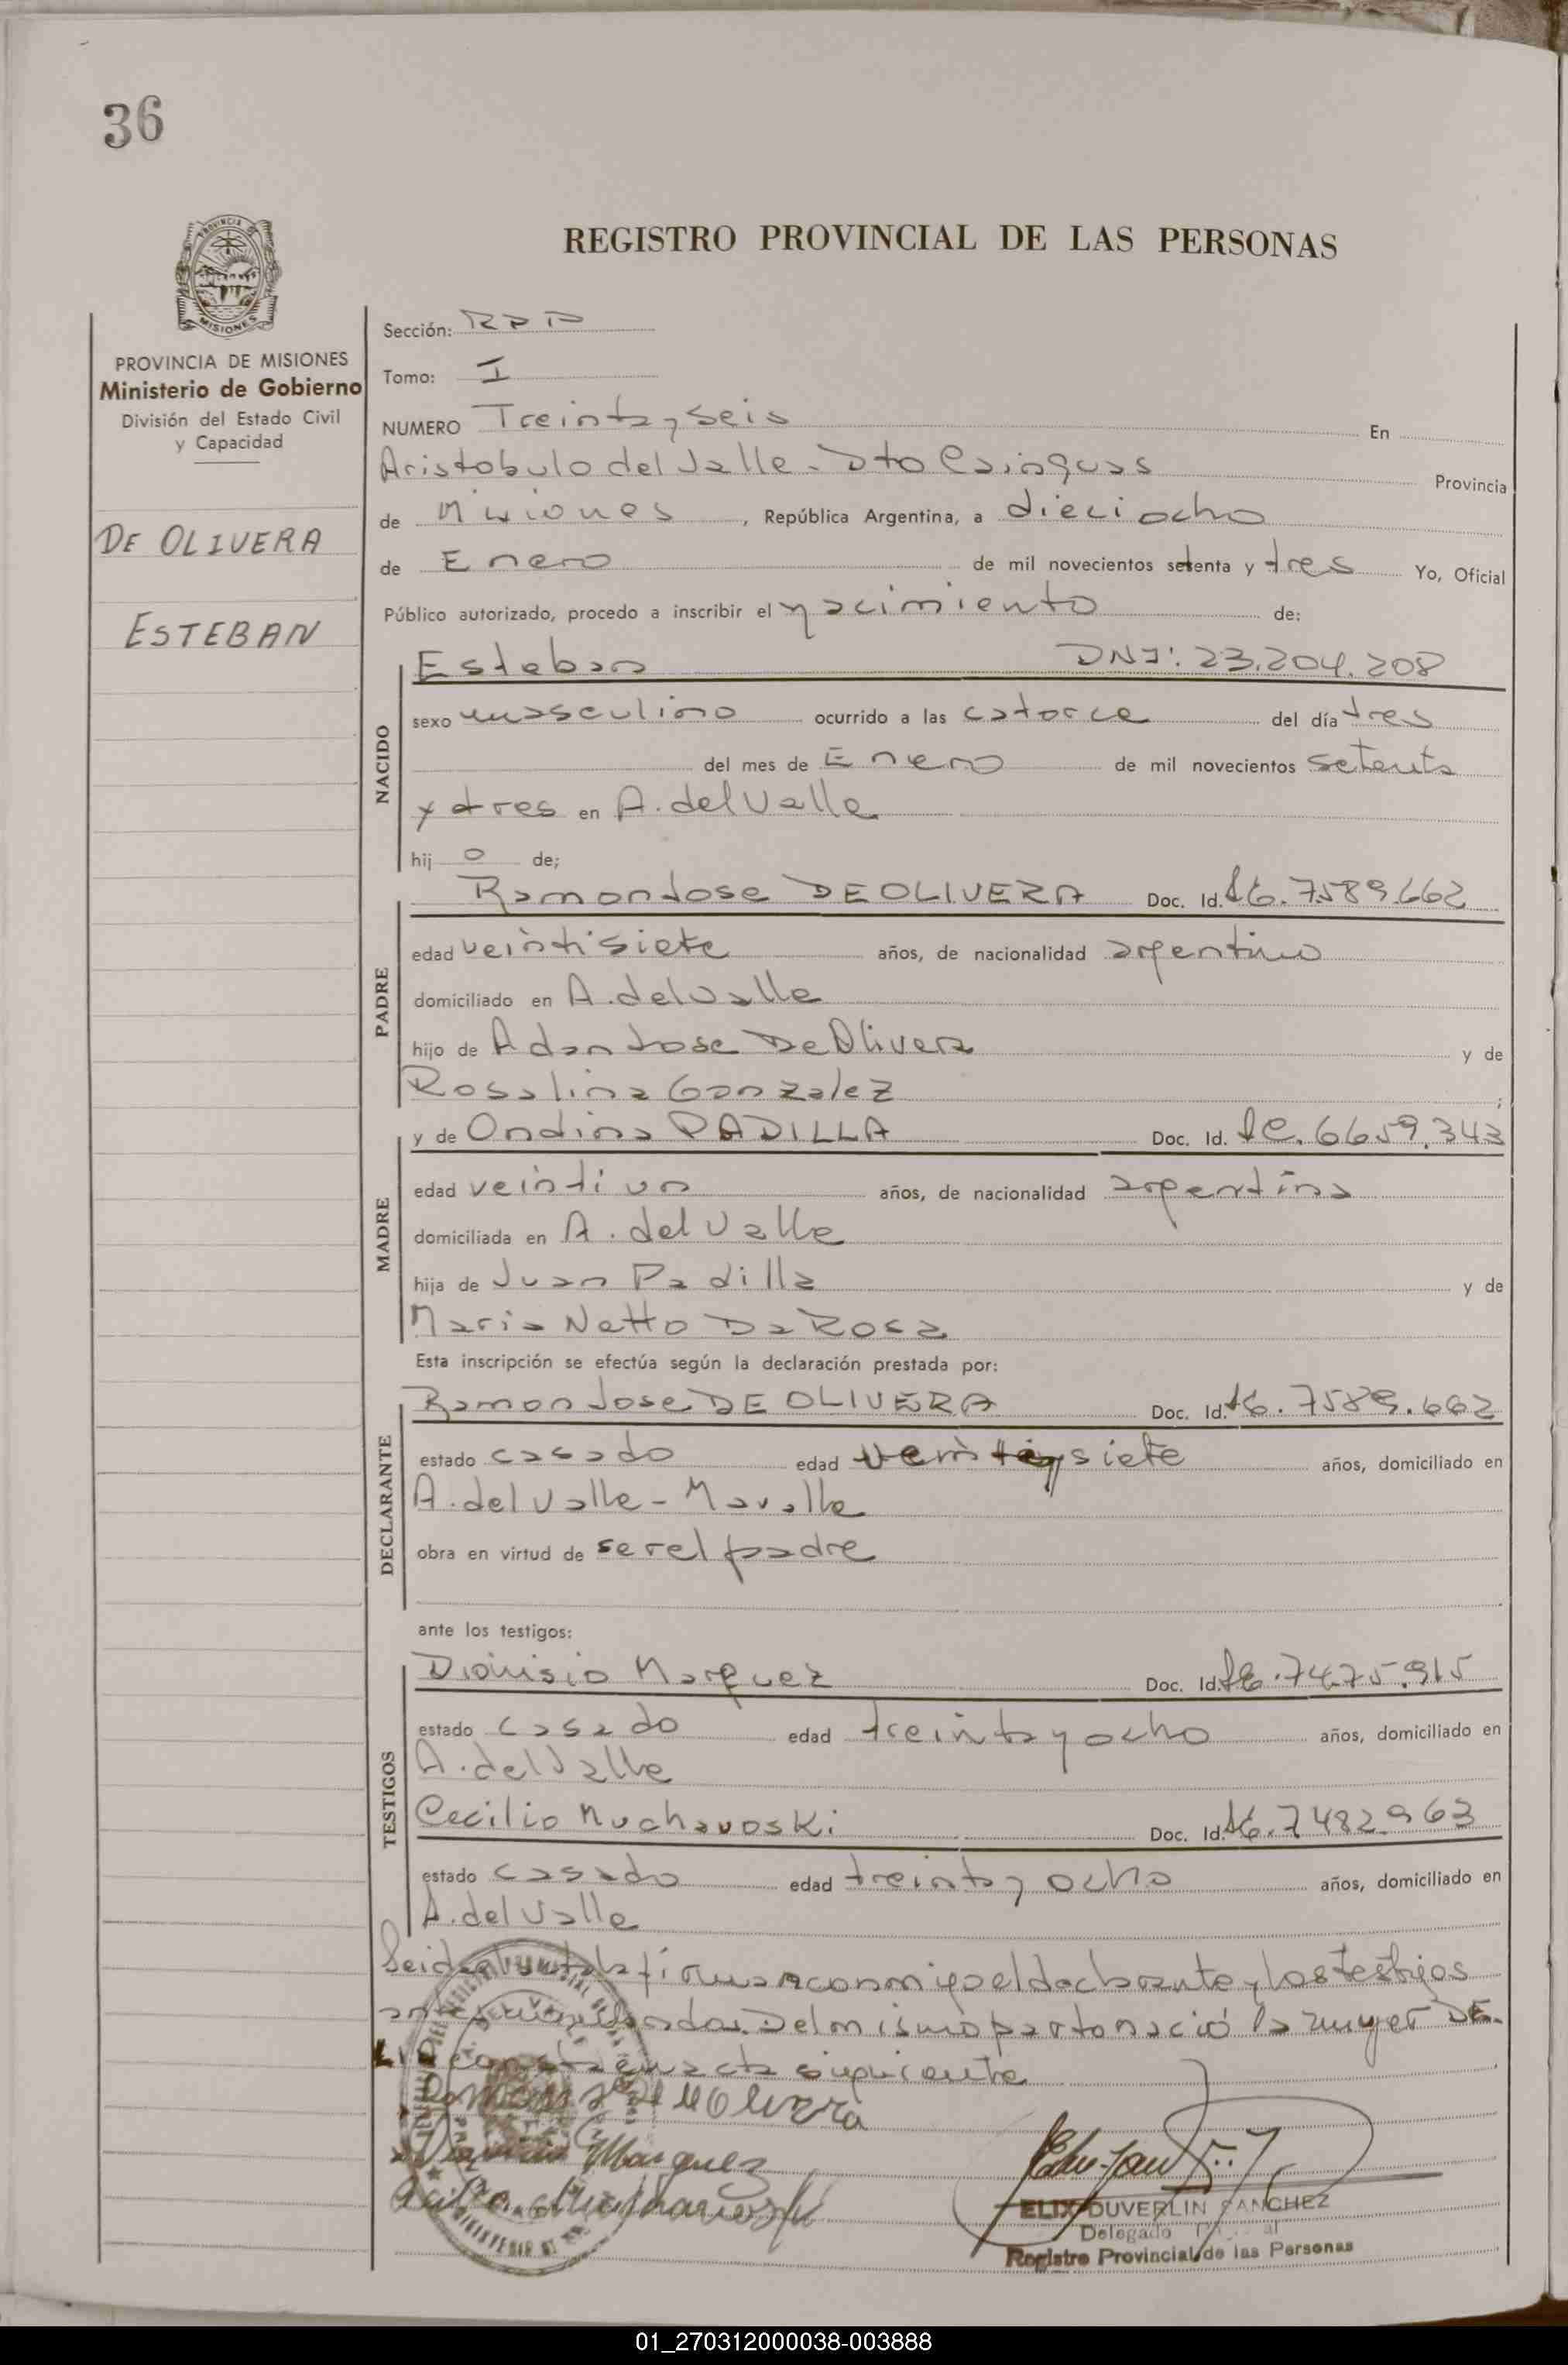 36
REGISTRO PROVINCIAL DE LAS PERSONAS
PROVINCIA
MISIONES
PROVINCIA DE MISIONES
Ministerio de Gobierno
División del Estado Civil
y Capacidad
DE OLIVERA
ESTEBAN
Sección: RPP
Tomo: I
NUMERO Treinta y seis En
Aristobulo del Valle - Dto Cainguas Provincia
de Misiones, República Argentina, a dieciocho
de Enero de mil novecientos setenta y tres Yo, Oficial
Público autorizado, procedo a inscribir el nacimiento de:
Esteban DNI: 23.204.208
NACIDO
sexo masculino ocurrido a las catorce del día tres
del mes de Enero de mil novecientos setenta
y tres en A. del Valle
hij o de;
Ramon Jose DE OLIVERA Doc. Id. 7.589.662
PADRE
edad veintisiete años, de nacionalidad argentino
domiciliado en A. del Valle
hijo de Adan Jose De Olivera y de
Rosalina Gonzalez ;
y de Ondina PADILLA Doc. Id. 6.659.343
MADRE
edad veintiun años, de nacionalidad argentina
domiciliada en A. del Valle
hija de Juan Padilla y de
Maria Netto Da Rosa
Esta inscripción se efectúa según la declaración prestada por:
Ramon Jose DE OLIVERA Doc. Id. 7.589.662
DECLARANTE
estado casado edad veintiysiete años, domiciliado en
A. del Valle - Mavalle
obra en virtud de ser el padre
ante los testigos:
Dionisio Marquez Doc. Id. 7.475.915
TESTIGOS
estado casado edad treinta y ocho años, domiciliado en
A. del Valle
Cecilio Muchavoski Doc. Id. 7.482.963
estado casado edad treinta y ocho años, domiciliado en
A. del Valle
Leida el acta la firman conmigo el declarante y los testigos
Del mismo parto nació la mujer DE
acta siguiente
De Olivera
Marquez
ELIX DUVERLIN SANCHEZ
Delegado
Registro Provincial de las Personas
01_270312000038-003888